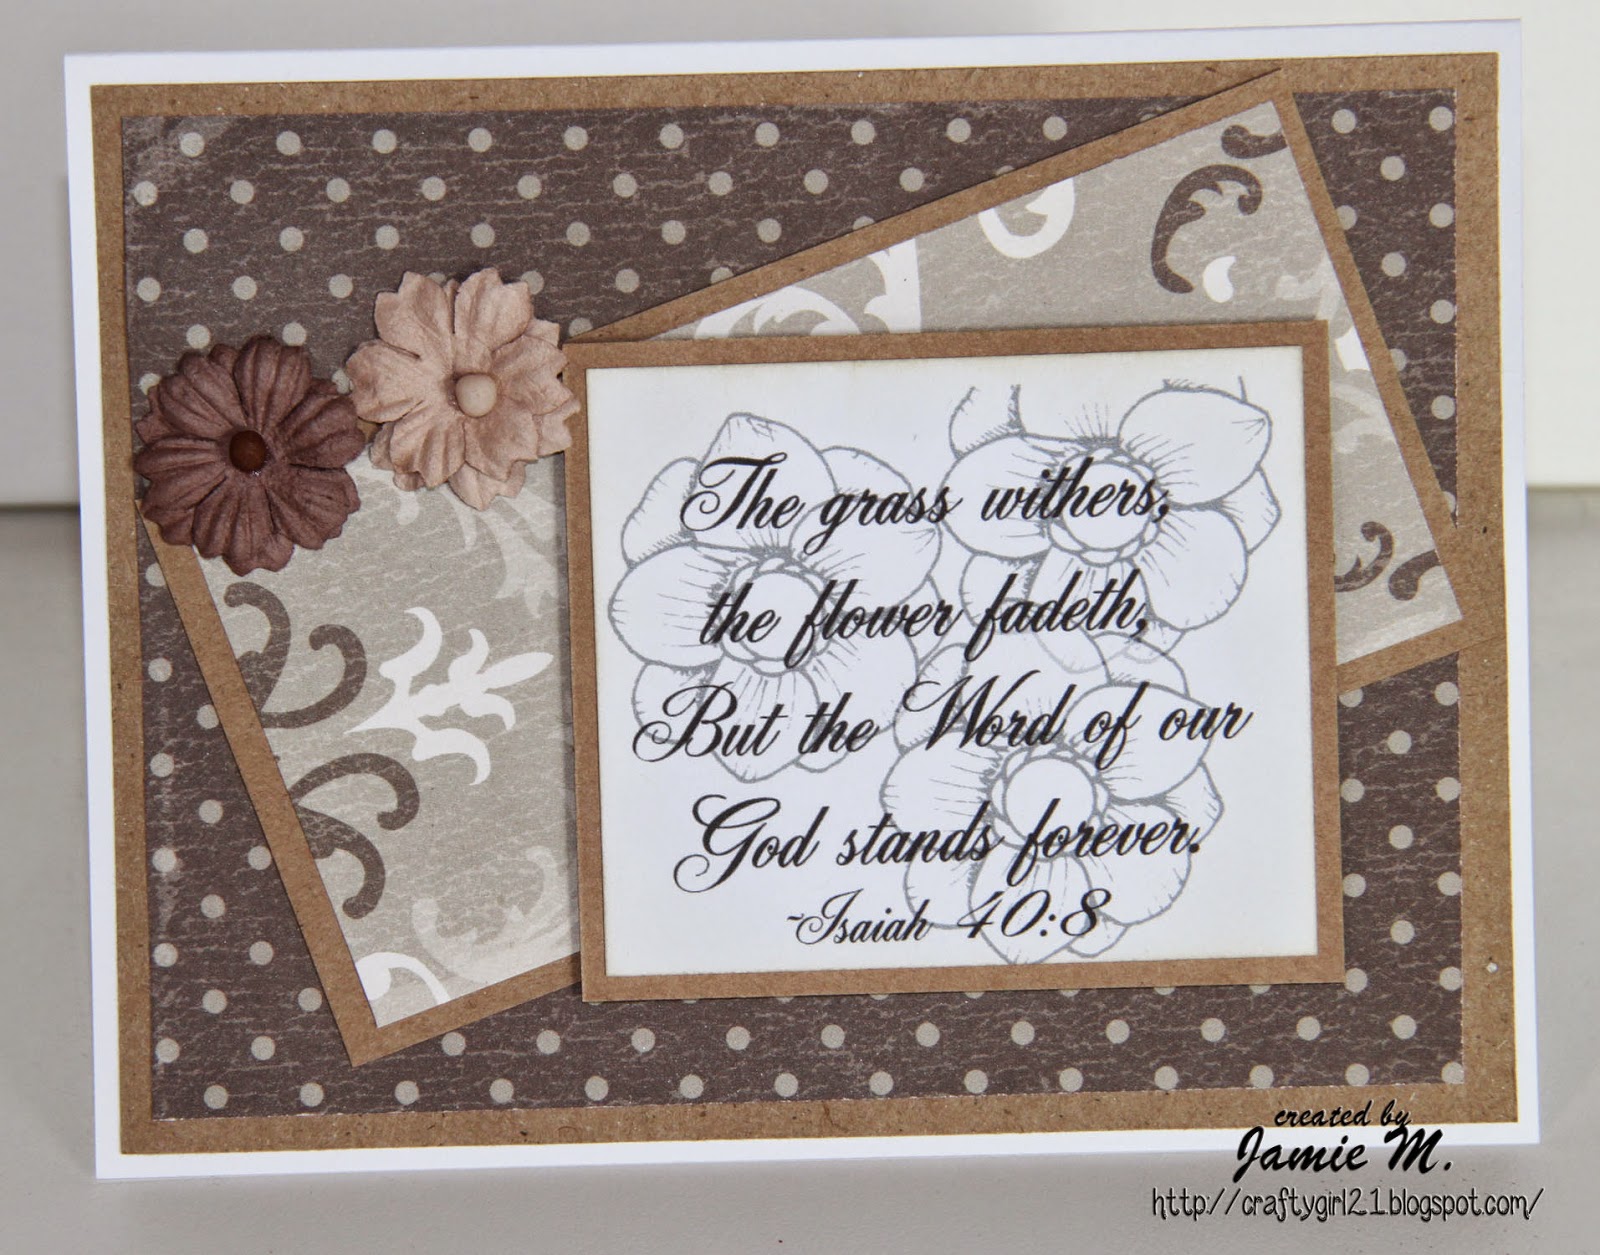 The grass withers,
the flower fadeth,
But the Word of our
God stands forever.
~Isaiah 40:8
created by
Jamie M.
http://craftygirl21.blogspot.com/